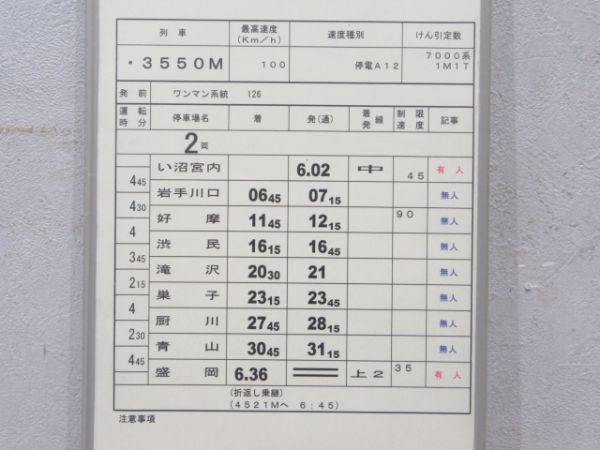 列車 最高速度(Km/h) 速度種別 けん引定数
・3550M 100 停電A12 7000系 1M1T
発前 ワンマン系統 126
運転時分 停車場名 着 発(通) 着発線 制限速度 記事
2両
い沼宮内 6.02 中 45 有人
4 45
岩手川口 06 45 07 15 無人
4 30
好摩 11 45 12 15 90 無人
4
渋民 16 15 16 45 無人
3 45
滝沢 20 30 21 無人
2 15
巣子 23 15 23 45 無人
4
厨川 27 45 28 15 無人
2 30
青山 30 45 31 15 無人
4 45
盛岡 6.36 上2 35 有人
(折返し乗継)
(4521Mへ 6:45)
注意事項